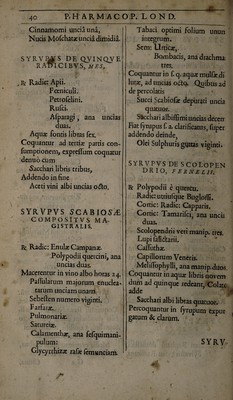 40 PHARMACOP. LOND.
Cinnamomi unciâ unâ,
Nucis Moschatæ unciâ dimidiâ.
SYRVPVS DE QVINQVE
RADICIBVS, MES,
℞ Radic: Apii.
Fœniculi.
Petroselini.
Rusci.
Asparagi, ana uncias
duas.
Aquæ fontis libras sex.
Coquantur ad tertiæ partis con-
sumptionem, expressum coquatur
denuò cum
Sacchari libris tribus,
Addendo in fine
Aceti vini albi uncias octo.
SYRVPVS SCABIOSÆ
COMPOSITVS MA-
GISTRALIS.
℞ Radic: Enulæ Campanæ.
Polypodii quercini, ana
uncias duas.
Macerentur in vino albo horas 24.
Passularum majorum enuclea-
tarum unciam unam.
Sebesten numero viginti.
Farfaræ,
Pulmonariæ
Satureiæ.
Calamenthæ, ana sesquimani-
pulum:
Glycyrrhizæ rasæ semunciam.
Tabaci optimi folium unum
integrum,
Sem: Urticæ,
Bombacis, ana drachmas
tres.
Coquantur in s q. aquæ mulsæ di-
lutæ, ad uncias octo. Quibus ad
de percolatis
Succi Scabiosæ depurati uncias
quatuor.
Sacchari albissimi uncias decem
Fiat syrupus S a. clarificatus, super
addendo deinde,
Olei Sulphuris guttas viginti.
SYRVPVS DE SCOLOPEN
DRIO, FERNELII.
℞ Polypodii è quercu.
Radic: utriusque Buglossi.
Cortic: Radic: Capparis.
Cortic: Tamarisci, ana uncias
duas.
Scolopendrii veri manip. tres
Lupi salictarii.
Cassuthæ.
Capillorum Veneris.
Melissophylli, ana manip. duos.
Coquantur in aquæ libris novem
dum ad quinque redeant, Colatis
adde
Sacchari albi libras quatuor.
Percoquantur in syrupum expur
gatum & clarum.
SYRV-